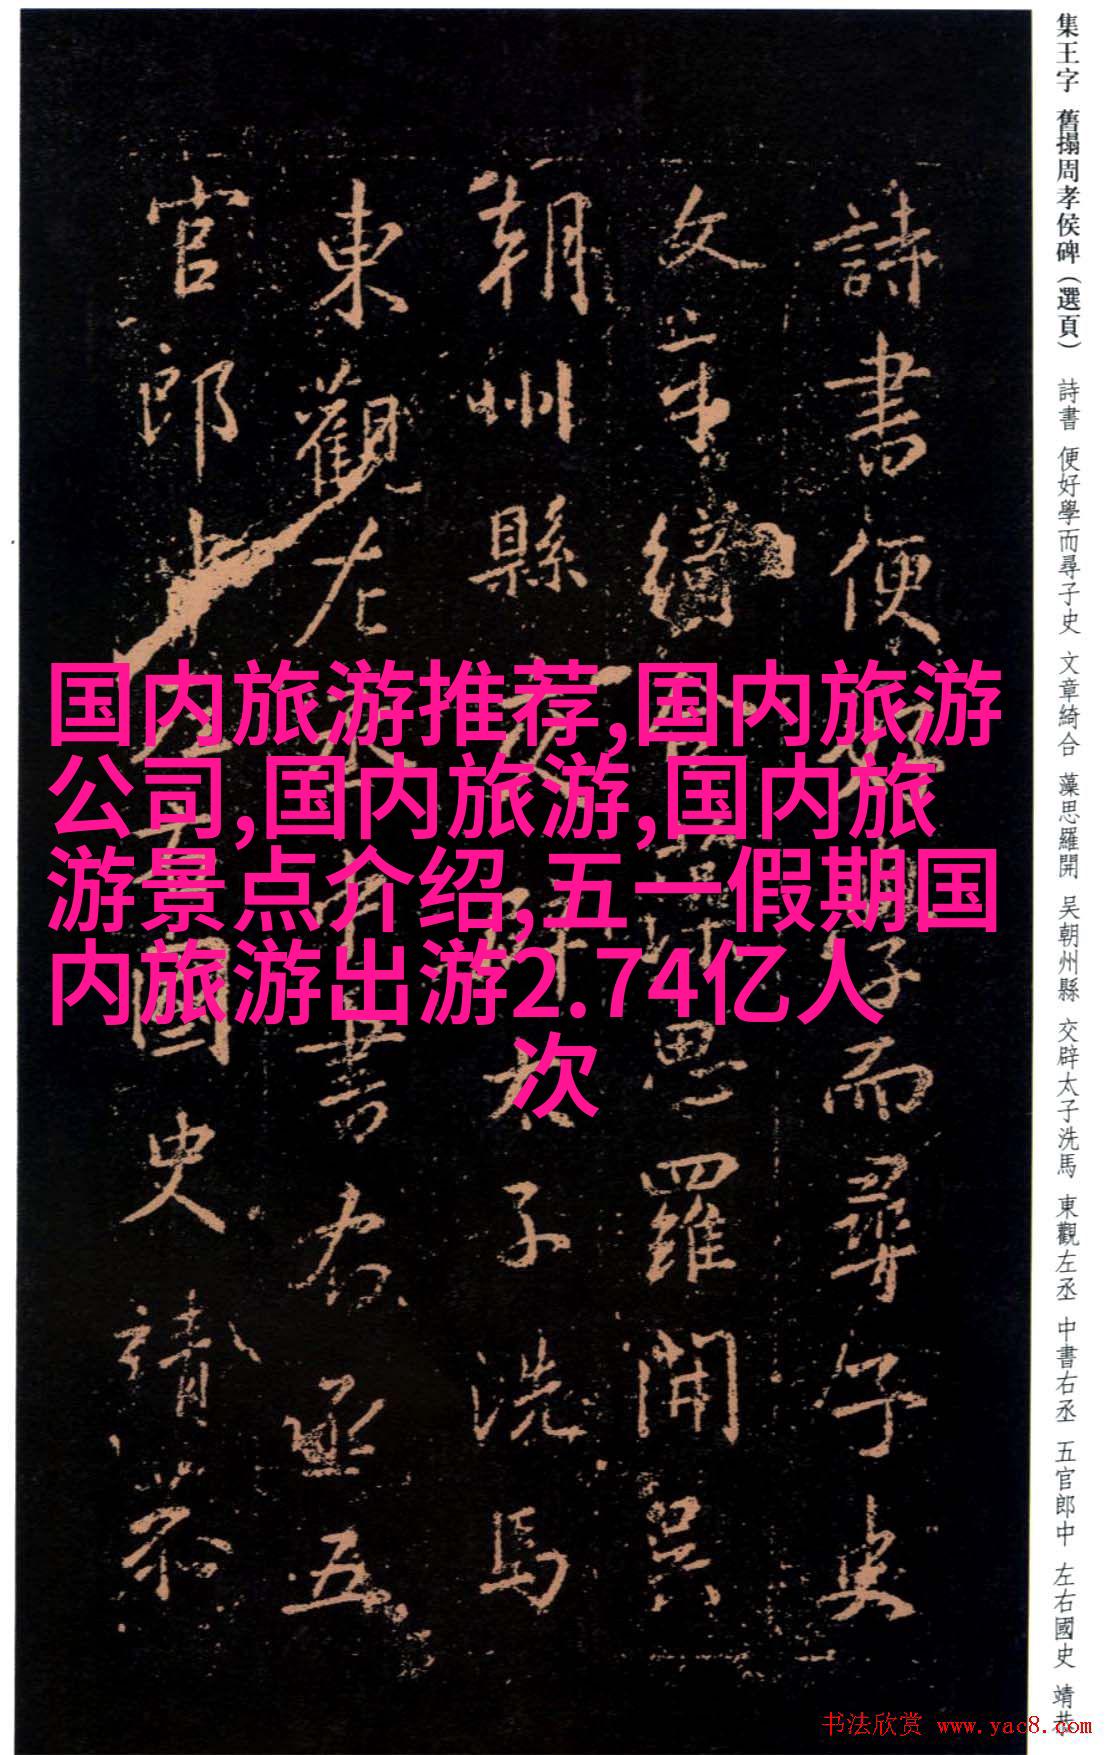 集王字 舊搨周孝侯碑（選頁） 詩書 便好學而尋子史 文章綺合 藻思羅開 吴朝州縣 交辟太子洗馬 東觀左丞 中書右丞 五官郎中 左右國史 靖恭
詩書便好學而尋子史
文章綺合藻思羅開吴
朝州縣交辟太子洗馬
東觀左丞中書右丞五
官郎中左右國史靖恭
国内旅游推荐,国内旅游
公司,国内旅游,国内旅
游景点介绍,五一假期国
内旅游出游2.74亿人
次
书法欣赏 www.yac8.com